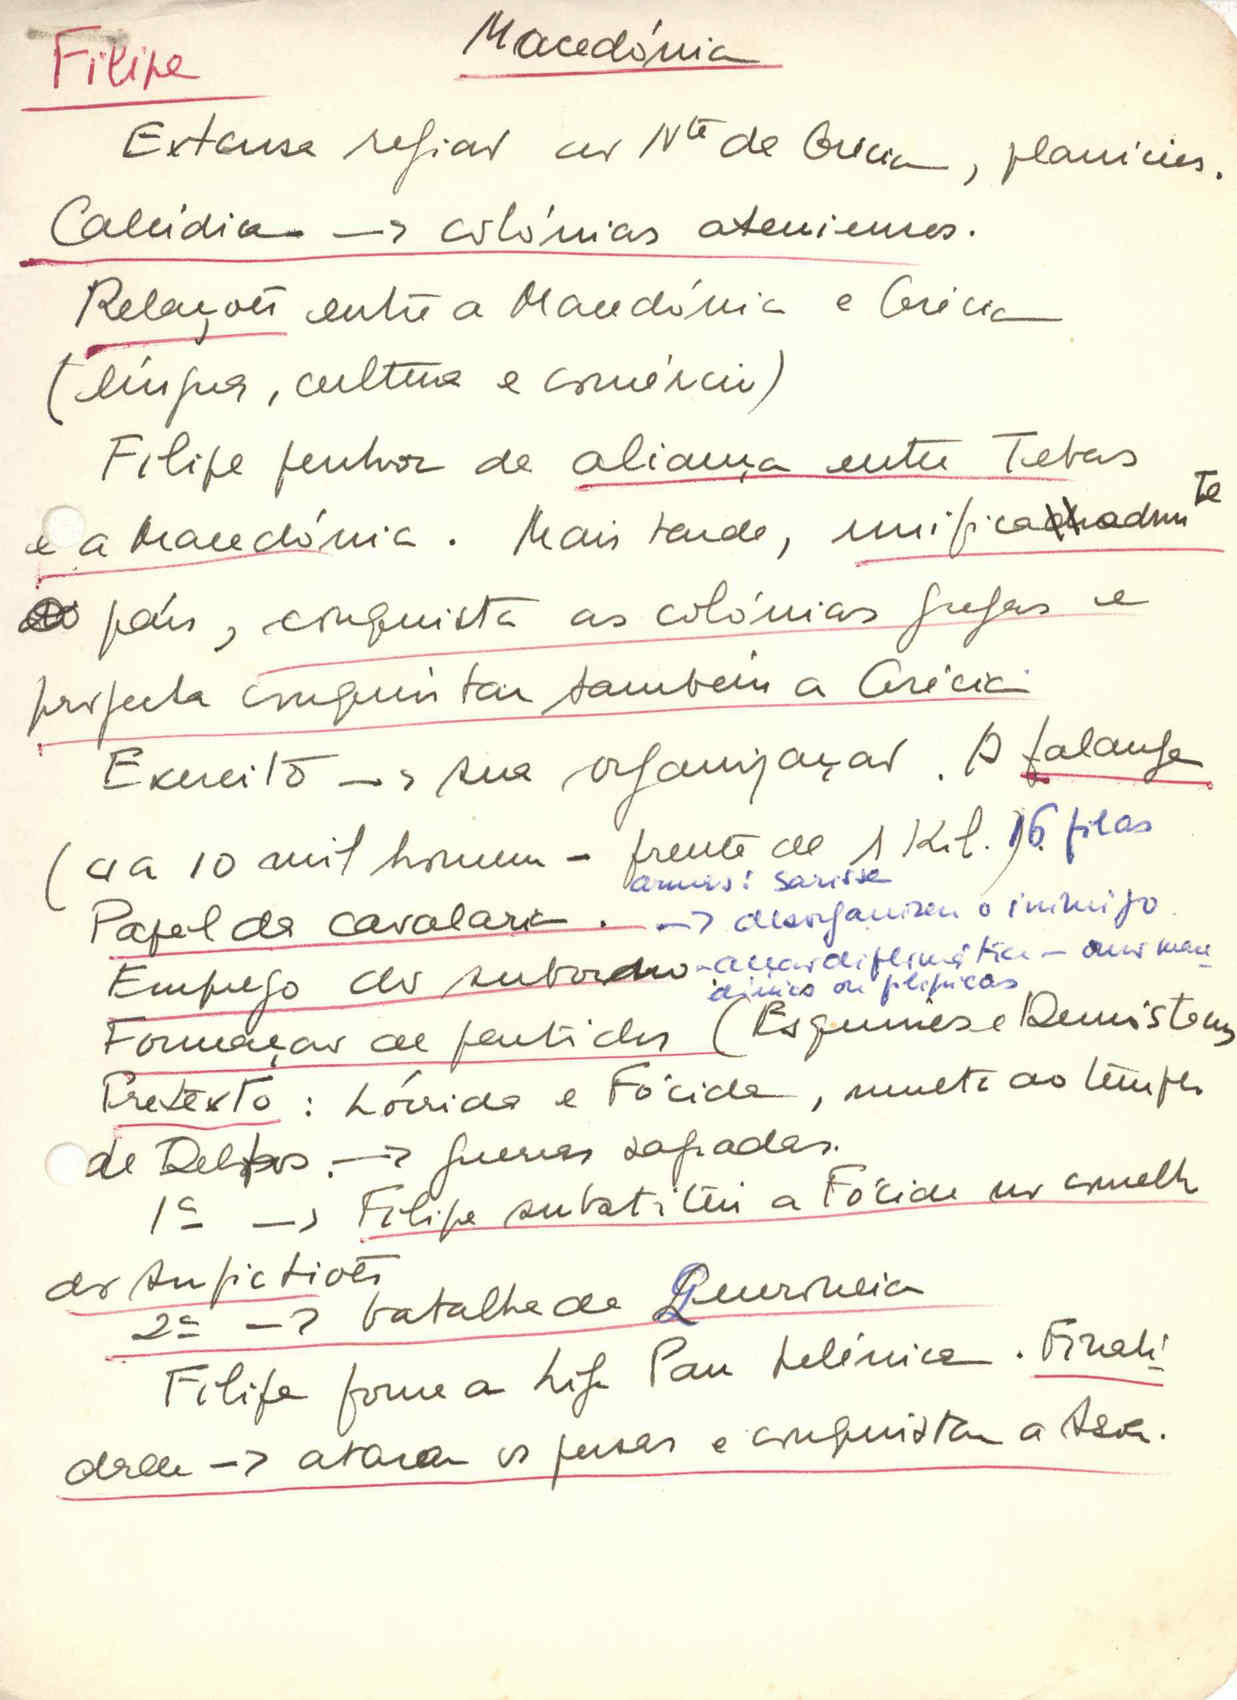 Filipe
Macedónia
Extensa região ao Nte da Grécia, planícies.
Calcídica —> colónias atenienses.
Relações entre a Macedónia e Grécia
(língua, cultura e comércio)
Filipe penhor de aliança entre Tebas
e a Macedónia. Mais tarde, unifica adm te
o país, conquista as colónias gregas e
projecta conquistar também a Grécia
Exercito —> sua organização. A falange
(4 a 10 mil homem - frente de 1 Kil.) 16 filas
armas: sarissa
Papel da cavalaria. —> desorganizar o inimigo
Emprego do suborno - acção diplomática - ouro mace-
dónico ou filípicas
Formação de partidos (Esquines e Demóstenes
Pretexto: Lócrida e Fócida, multa ao templo
de Delfos. —> guerras sagradas.
1ª —> Filipe substitui a Fócida no conselho
dos Anfictiões
2ª —> batalha de Queroneia
Filipe forma a Liga Pan helénica. Finali-
dade —> atacar os persas e conquistar a Asia.